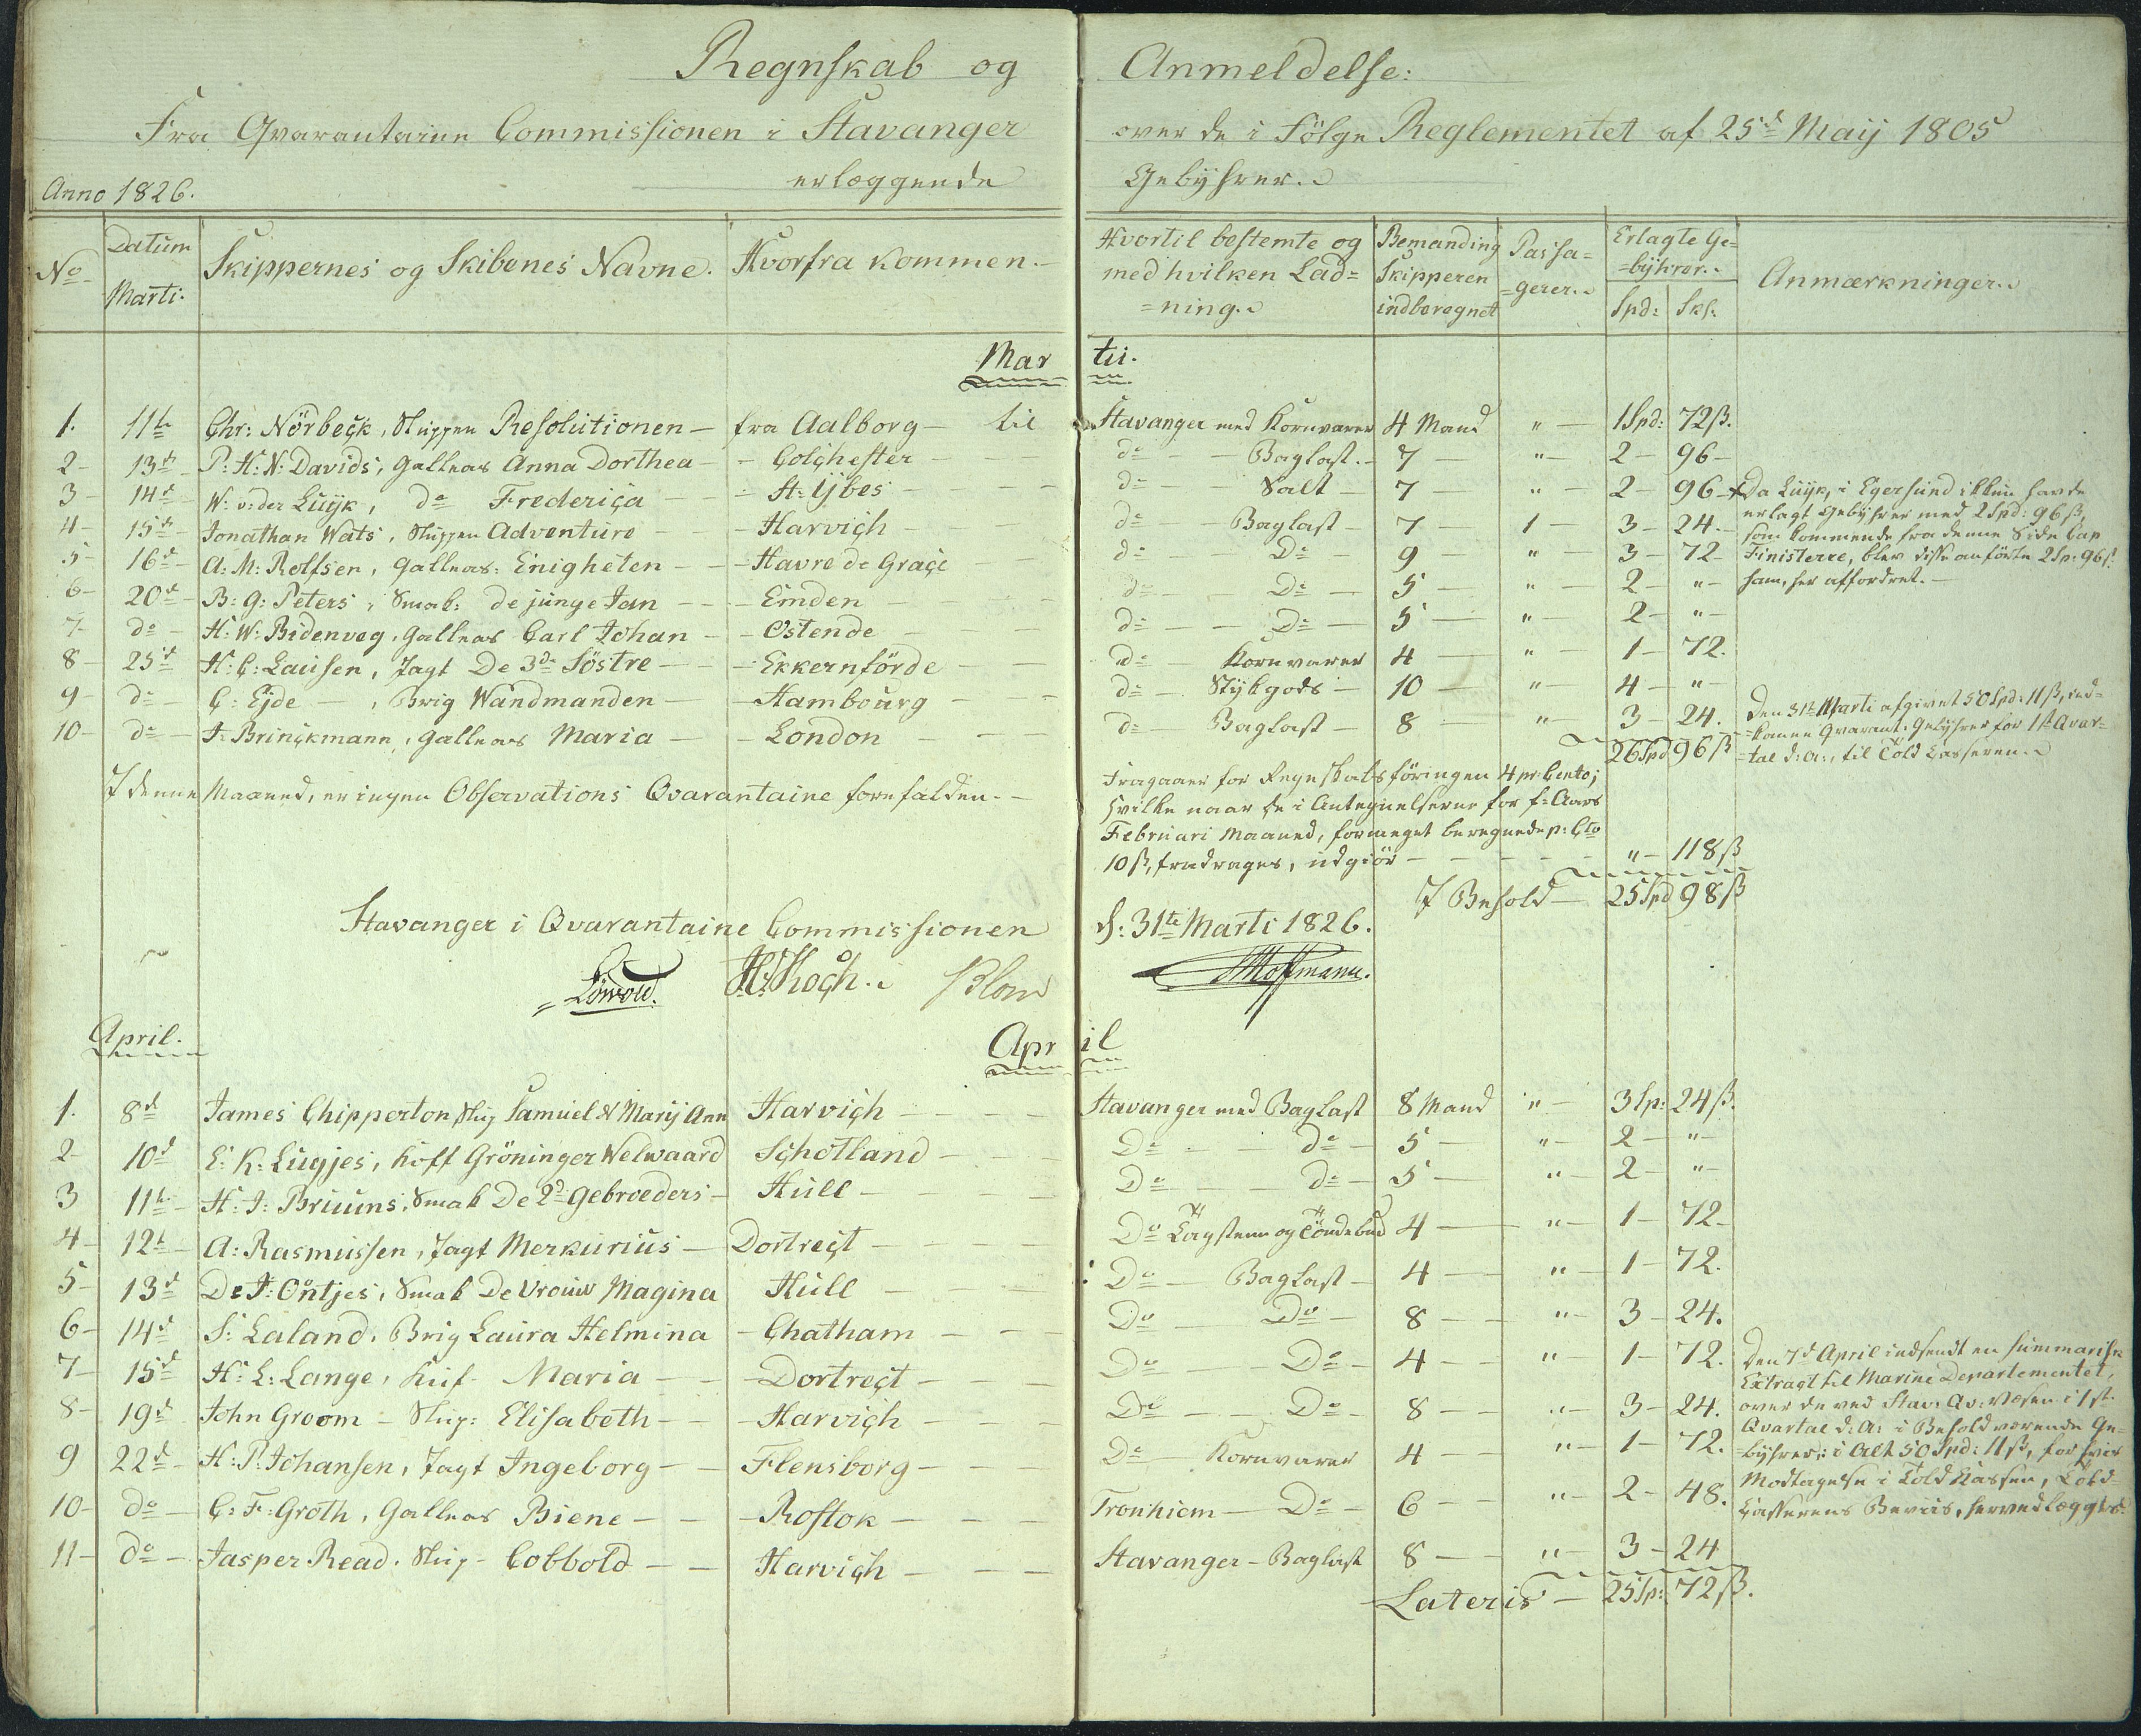 Regnskab og Anmeldelse:
Fra Qvarantaine Commissionen i Stavanger over de i Følge Reglementet af 25d Maij 1805
Anno 1826. erlæggende Gebÿhrer.
No Datum Skippernes og Skibenes Navne. Hvorfra kommen. Hvortil bestemte og Bemanding Passa= Erlagte Ge=
Marti. med hvilken Lad= Skipperen =gerer. =bÿhrer. Anmærkninger.
=ning. indberegnet Spd: Sks.
Mar tii.
1. 11te Chr: Nörbeck, Sluppen Resolutionen — fra Aalborg — til Stavanger med Kornvarer 4 Mand " — 1 Spd: 72ß.
2 — 13de P: H: N: Davids, Galleas Anna Dorthea — Colchester — do — Baglast. — 7 — " — 2 — 96 —
3 — 14de W: v: der Luijk, do Frederica — St: Ÿbes — do — Salt — 7 — " — 2 — 96 —
4 — 15de Jonathan Wats, Sluppen Adventure — Harvich — do — Baglast — 7 — 1 — 3 — 24 —
5 — 16de A: M: Rolfsen, Galleas: Enigheten — Havre de Grace do — Do — 9 — " — 3 — 72 —
6 — 20de B: G: Peters, Smak: de junge Jan — Emden — do — Do — 5 — " — 2 — " —
7 — do — H: W: Bidenveg, Galleas Carl Johan — Ostende — do — Do — 5 — " — 2 — " —
8 — 25de H: C: Lausen, Jagt De 3de Söstre — Ekkernförde — do — Kornvarer 4 — " — 1 — 72.
9 — do — C: Ejde —, Brig Wandmanden — Hambourg — do — Stÿkgods — 10 — " — 4 — " —
10 — do — J: Brinckmann, Galleas Maria — London — do — Baglast — 8 — " — 3 — 24.
26 Spd 96ß
Da Luijk, i Egersund ikkun havde
erlagt Gebÿhrer med 2 Spd: 96ß,
som kommende fra denne Side Cap
Finisterre, blev disse anförte 2 Sp: 96ß
ham, her affordret. —
Den 31te Marti afgivet 50 Spd: 11ß, ind=
=komne Qvarant: Gebÿhrer for 1ste Qvar=
=tal d: A:, til Told Casseren.
I denne Maaned, er ingen Observations Qvarantaine forefalden. —
Fragaaer for Regnskabsföringen 4 pr: Cento;
hvilke naar de i Antegnelserne for f: Aars
Februari Maaned, formeget beregnede p: Cto
10ß, fradrages, udgiör — " — 118ß
I Behold — 25 Spd 98ß
Stavanger i Qvarantaine Commissionen d: 31te Marti 1826.
Löwold. Koch. Blom Hoffmann.
April. Apr il
1. 8de James Chipperton Slup Samuel & Marÿ Ann Harvich — Stavanger med Baglast 8 Mand " — 3 Sp: 24ß.
2 — 10de E: K: Luijjes, Koff Gröninger Welwaard Schotland — Do — do — 5 — " — 2 — " —
3 11te H: J: Bruuns, Smak De 2de Gebroeders — Hull — Do — do — 5 — " — 2 — " —
4 — 12te A: Rasmussen, Jagt Merkurius — Dortrect — Do Tagsteen og Töndebaand 4 — " — 1 — 72 —
5 — 13de De J: Ontjes, Smak De Vrouw Magina Hull — Do — Baglast — 4 — " — 1 — 72.
6 — 14de S: Laland, Brig Laura Helmina — Chatham — Do — Do — 8 — " — 3 — 24.
7 — 15de H: L: Lange, Kuf — Maria — Dortrect — Do — Do — 4 — " — 1 — 72.
8 — 19de John Groom — Slup: Elisabeth — Harvich — Do — Do — 8 — " — 3 — 24.
9 22de H: P: Johansen, Jagt Ingeborg — Flensborg — Do — Kornvarer 4 — " — 1 — 72.
10 — do — C: F: Groth, Galleas Biene — Rostok — Tronhiem — Do — 6 — " — 2 — 48.
11 — do — Jasper Read. Slup — Cobbold — Harvich — Stavanger — Baglast 8 — " — 3 — 24
Den 7de April indsendt en summarisk
Extragt til Marine Departementet,
over de ved Stav: Qv: Væsen i 1st.
Qvartal d: A: i Behold værende Ge=
=bÿhrer; i Alt 50 Spd: 11ß, for hvis
Modtagelse i Told Kassen, Told=
Casserens Beviis, herved lægges.
Lateris — 25 Sp: 72ß.